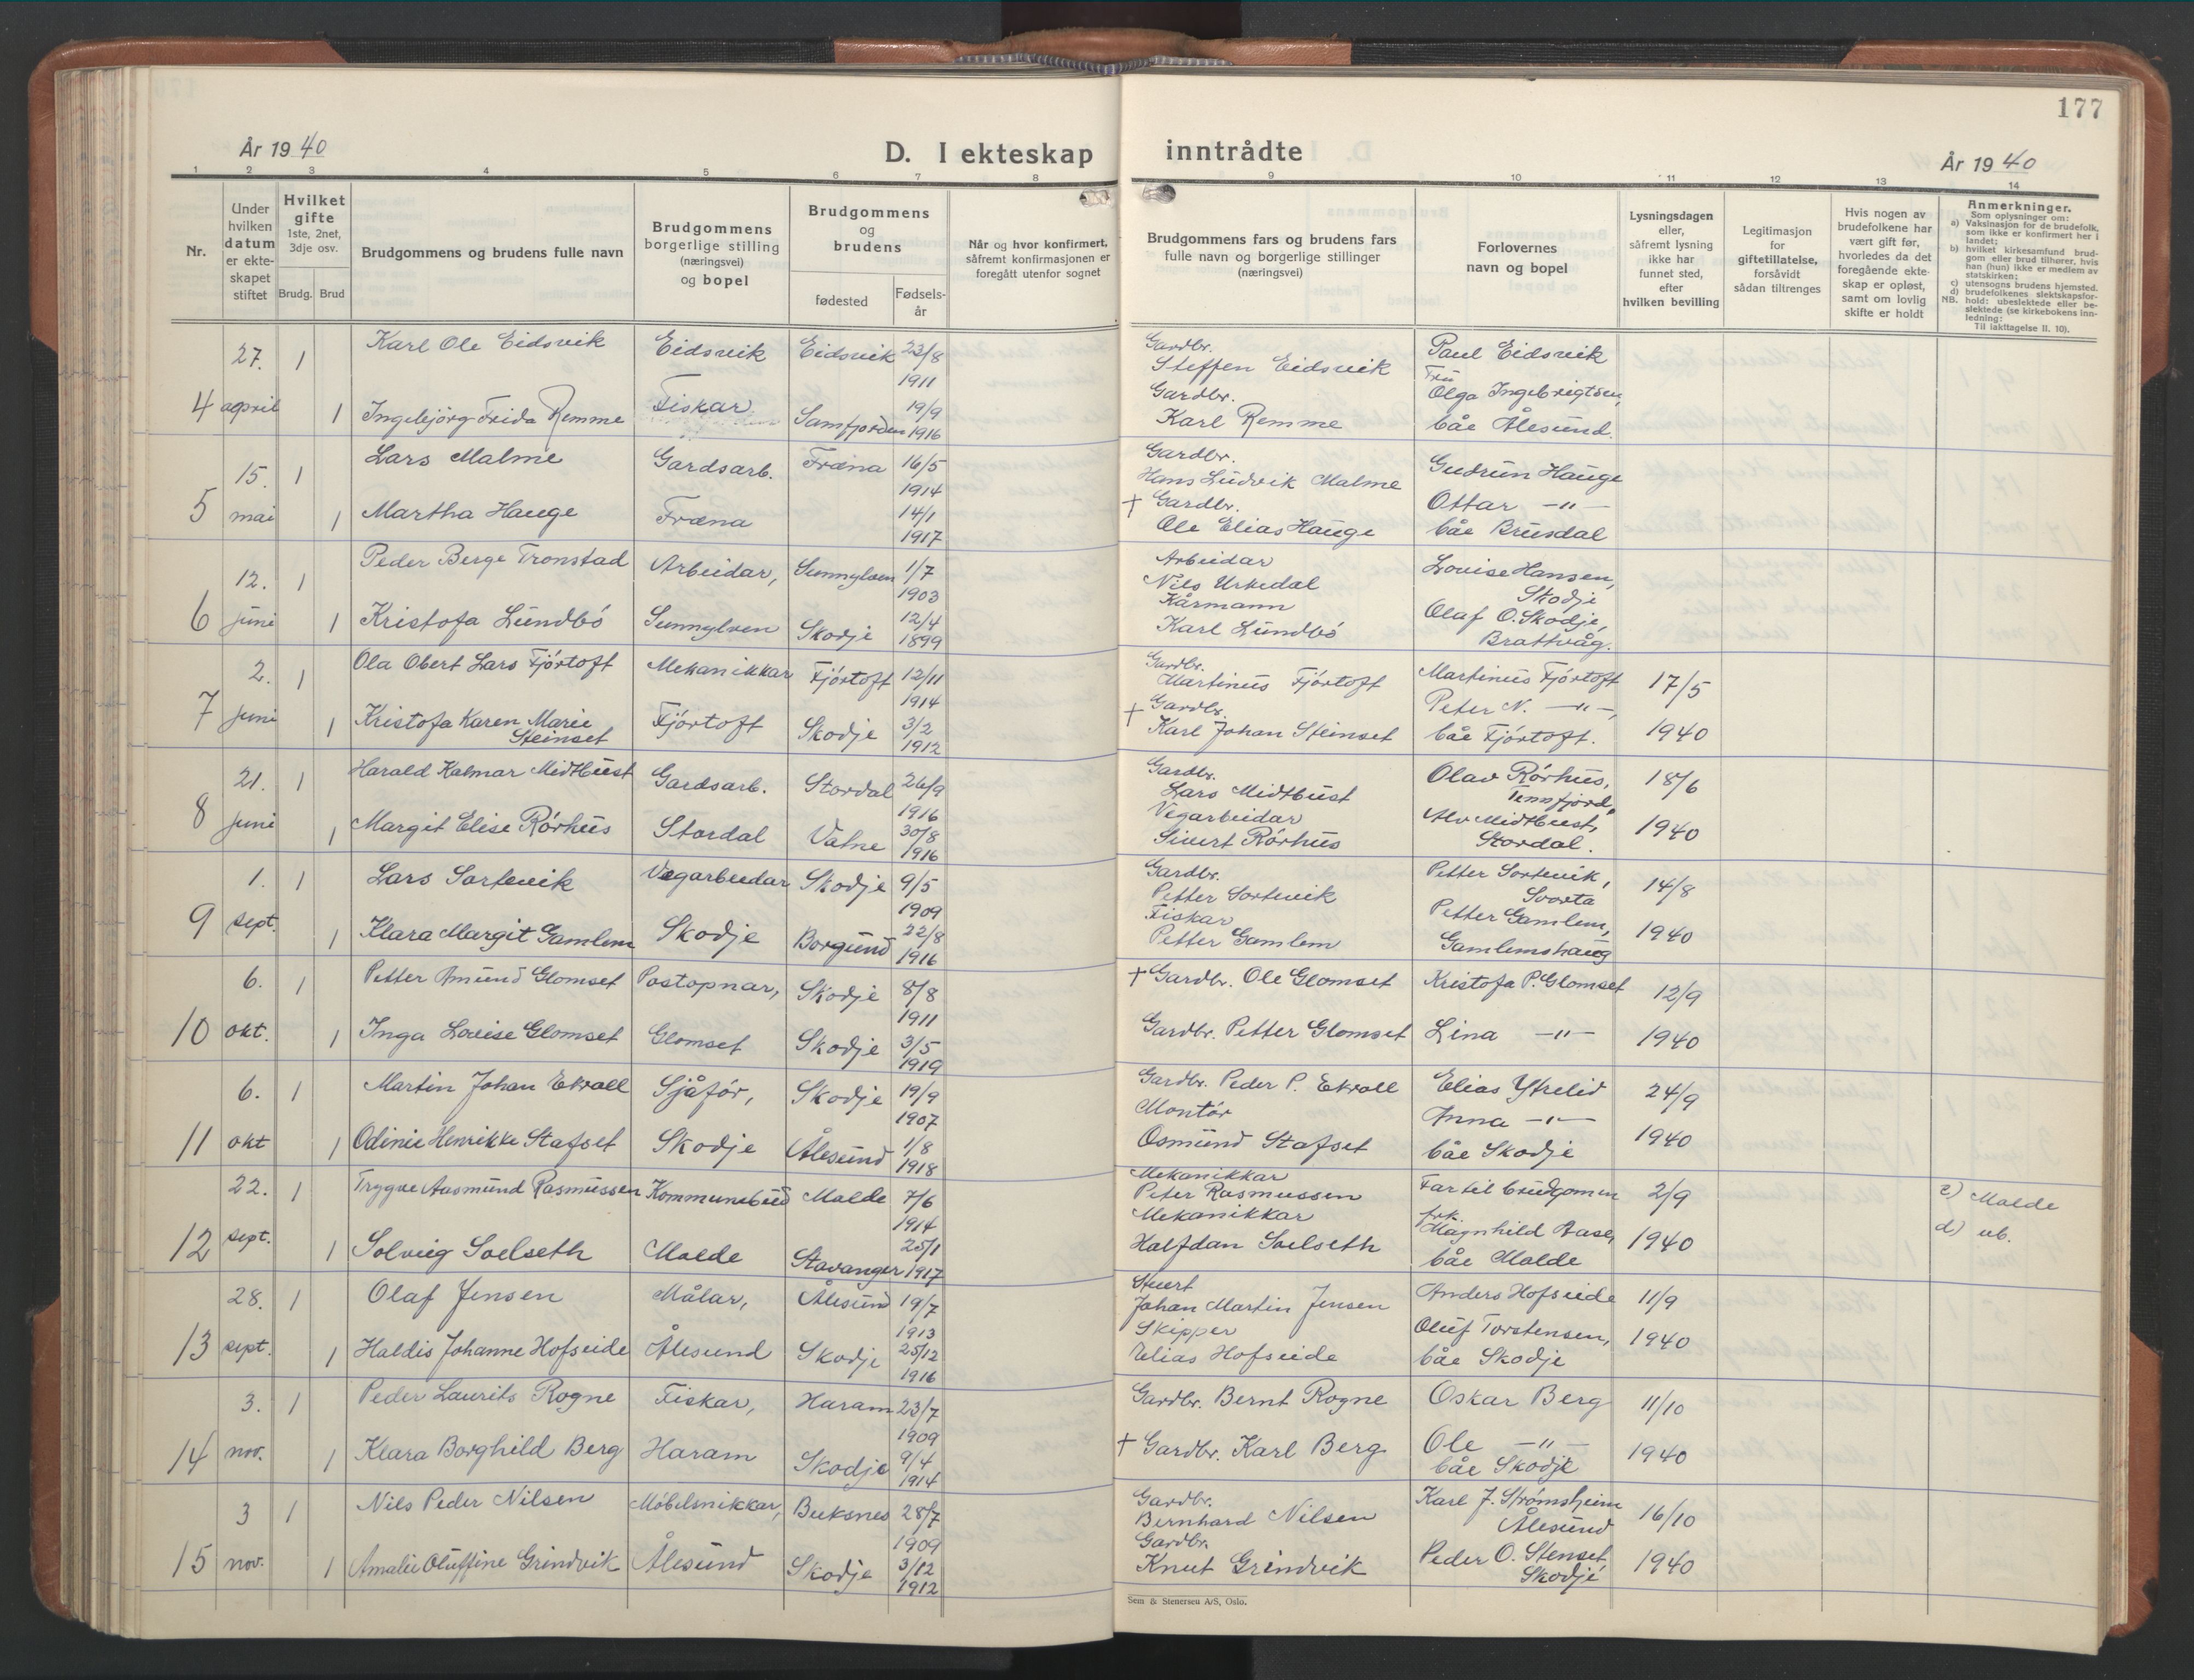 177
År 1940
D. I ekteskap inntrådte
År 1940
1 2 3 4 5 6 7 8 9 10 11 12 13 14
Nr.
Under hvilken datum er ekte-skapet stiftet
Hvilket gifte 1ste, 2net, 3dje osv.
Brudg. Brud
Brudgommens og brudens fulle navn
Brudgommens borgerlige stilling (næringsvei) og bopel
Brudgommens og brudens
fødested
Fødsels-år
Når og hvor konfirmert, såfremt konfirmasjonen er foregått utenfor sognet
Brudgommens fars og brudens fars fulle navn og borgerlige stillinger (næringsvei)
Forlovernes navn og bopel
Lysningsdagen eller, såfremt lysning ikke har funnet sted, efter hvilken bevilling
Legitimasjon for giftetillatelse, forsåvidt sådan tiltrenges
Hvis nogen av brudefolkene har vært gift før, hvorledes da det foregående ekte-skap er opløst, samt om lovlig skifte er holdt
Anmerkninger.
Som oplysninger om:
a) Vaksinasjon for de brudefolk, som ikke er konfirmert her i landet;
b) hvilket kirkesamfund brud-gom eller brud tilhører, hvis han (hun) ikke er medlem av statskirken;
c) utensogns brudens hjemsted.
d) brudefolkenes slektskapsfor-hold: ubeslektede eller be-slektede (se kirkebokens inn-ledning:
NB. Til iakttagelse II. 10).
27. 1 Karl Ole Eidsvik Eidsvik Eidsvik 23/8 1911 Gardbr. Steffen Eidsvik Paul Eidsvik
4 april 1 Ingebjørg Frida Remme Fiskar Samfjorden 19/9 1916 Gardbr. Karl Remme Fru Olga Ingebrigtsen, båe Ålesund.
15. 1 Lars Malme Gardsarb. Fræna 16/5 1914 Gardbr. Hans Ludvik Malme Gudrun Hauge
5 mai 1 Martha Hauge Fræna 14/1 1917 + Gardbr. Ole Elias Hauge Ottar -"- båe Brusdal
12. 1 Peder Berge Tronstad Arbeidar, Sunnylven 1/7 1903 Arbeidar Nils Urkedal Lovise Hansen, Skodje
6 juni 1 Kristofa Lundbö Sunnylven Skodje 12/4 1899 Kårmann Karl Lundbö Olaf O. Skodje, Brattvåg.
2. 1 Ola Obert Lars Fjörtoft Mekanikkar Fjörtoft 12/11 1914 Gardbr. Martinus Fjörtoft Martinus Fjörtoft 17/5
7 juni 1 Kristofa Karen Marie Steinset Fjörtoft Skodje 3/2 1912 + Gardbr. Karl Johan Steinset Peter N. -"-, båe Fjörtoft. 1940
21. 1 Harald Kalmar Midtbust Gardsarb. Stordal 26/9 1916 Gardbr. Lars Midtbust Olav Rörhus, Tennfjord, 18/6
8 juni 1 Margit Elise Rörhus Stordal Vatne 30/8 1916 Vegarbeidar Sivert Rörhus Alv Midtbust, Stordal. 1940
1. 1 Lars Sortevik Vegarbeidar Skodje 9/5 1909 Gardbr. Petter Sortevik Petter Sortevik, Svorta 14/8
9 sept. 1 Klara Margit Gamlem Skodje Borgund 22/8 1916 Fiskar Petter Gamlem Petter Gamlem, Gamlemshaug 1940
6. 1 Petter Amund Glomset Postopnar, Skodje 8/8 1911 + Gardbr. Ole Glomset Kristofa P. Glomset 12/9
10 okt. 1 Inga Lovise Glomset Glomset Skodje 3/5 1919 Gardbr. Petter Glomset Lina -"- 1940
6. 1 Martin Johan Ekroll Sjåför, Skodje 19/9 1907 Gardbr. Peder P. Ekroll Elias Ytrelid 24/9
11 okt 1 Odinie Henrikke Stafset Skodje Ålesund 1/8 1918 Montör Osmund Stafset Anna -"- båe Skodje 1940
22. 1 Trygve Aasmund Rasmussen Kommunebud Molde 7/6 1914 Mekanikkar Peter Rasmussen Far til brudgomen 2/9 c) Molde
12 sept. 1 Solveig Soelseth Molde Stavanger 25/1 1917 Mekanikkar Halfdan Soelseth frk. Magnhild Aase, båe Molde 1940 d) ub.
28. 1 Olaf Jensen Målar, Ålesund 19/7 1913 Stuert Johan Martin Jensen Anders Hofseide 11/9
13 sept. 1 Haldis Johanne Hofseide Ålesund Skodje 25/12 1916 Skipper Elias Hofseide Oluf Torstensen, båe Skodje 1940
3. 1 Peder Laurits Rogne Fiskar, Haram 23/7 1909 Gardbr. Bernt Rogne Oskar Berg 11/10
14 nov. 1 Klara Borghild Berg Haram Skodje 9/4 1914 + Gardbr. Karl Berg Ole -"- båe Skodje 1940
3 1 Nils Peder Nilsen Möbelsnikkar, Buksnes 28/7 1909 Gardbr. Bernhard Nilsen Karl J. Strömsheim Ålesund 16/10
15 nov. 1 Amalie Oluffine Grindvik Ålesund Skodje 3/12 1912 Gardbr. Knut Grindvik Peder O. Stenset, Skodje 1940
Sem & Stenersen A/S, Oslo.